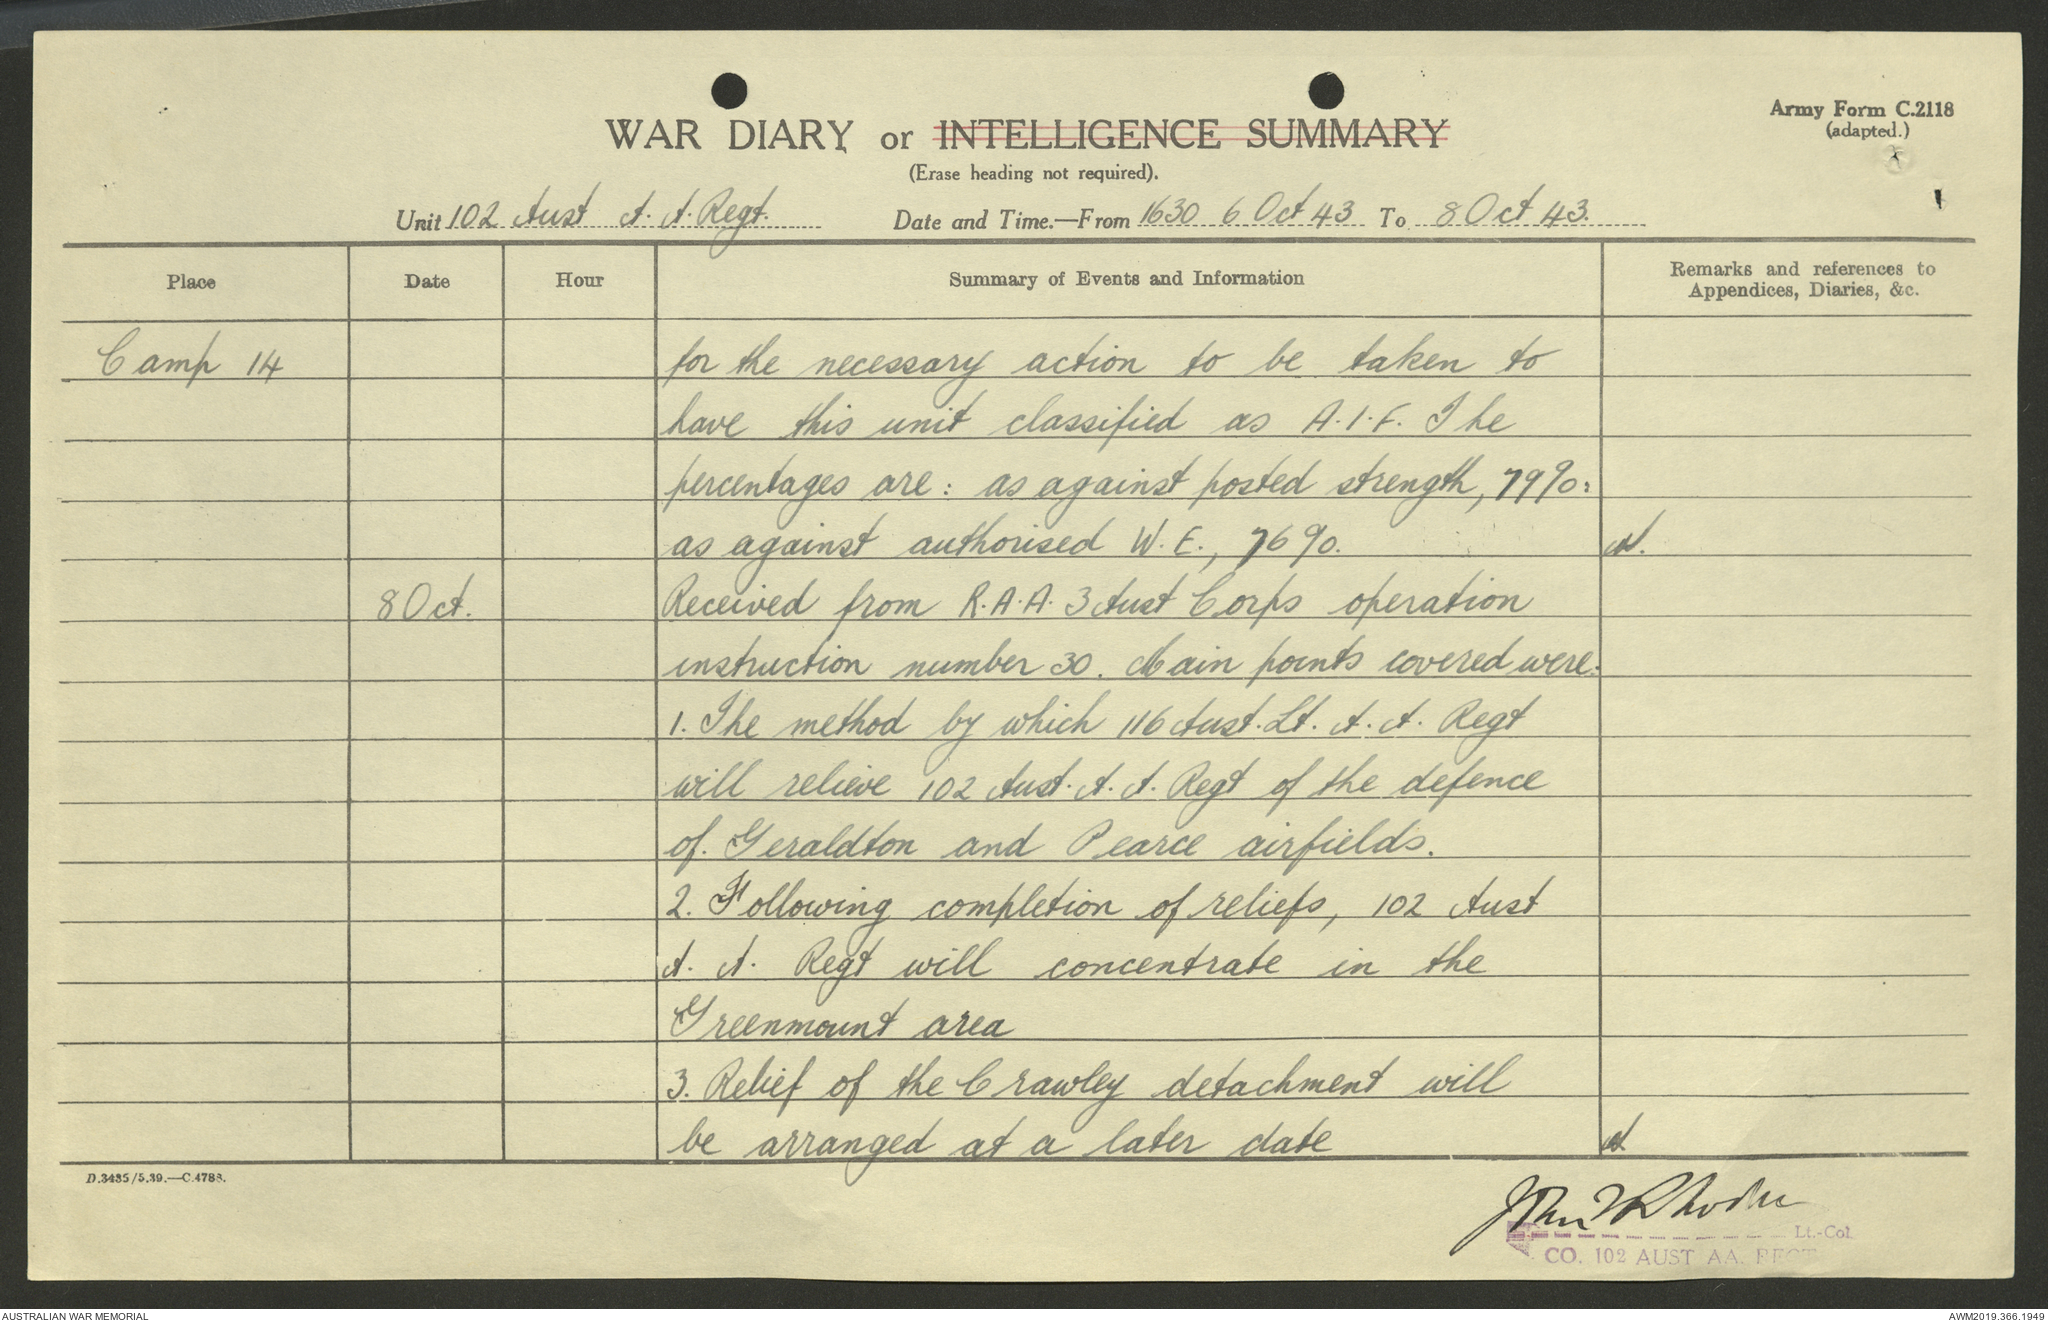 Army Form C.2118
(adapted.)
WAR DIARY or INTELLIGENCE SUMMARY
(Erase heading not required).
Unit 102 Aust A.A. Regt. Date and Time.—From 1630 6 Oct 43 To 8 Oct 43.
Place Date Hour Summary of Events and Information Remarks and references to
Appendices, Diaries, &c.
Camp 14 for the necessary action to be taken to
have this unit classified as A.I.F. The
percentages are: as against posted strength, 79%:
as against authorised W.E., 76%.
8 Oct. Received from R.A.A. 3 Aust Corps operation
instruction number 30. Main points covered were:
1. The method by which 116 Aust. Lt. A.A. Regt
will relieve 102 Aust. A.A. Regt of the defence
of. Geraldton and Pearce airfields.
2. Following completion of reliefs, 102 Aust
A.A. Regt will concentrate in the
Greenmount area
3. Relief of the Crawley detachment will
be arranged at a later date
D.3435/5.39.—C.4788.
Lt.-Col.
CO. 102 AUST AA. REGT
AUSTRALIAN WAR MEMORIAL AWM2019.366.1949